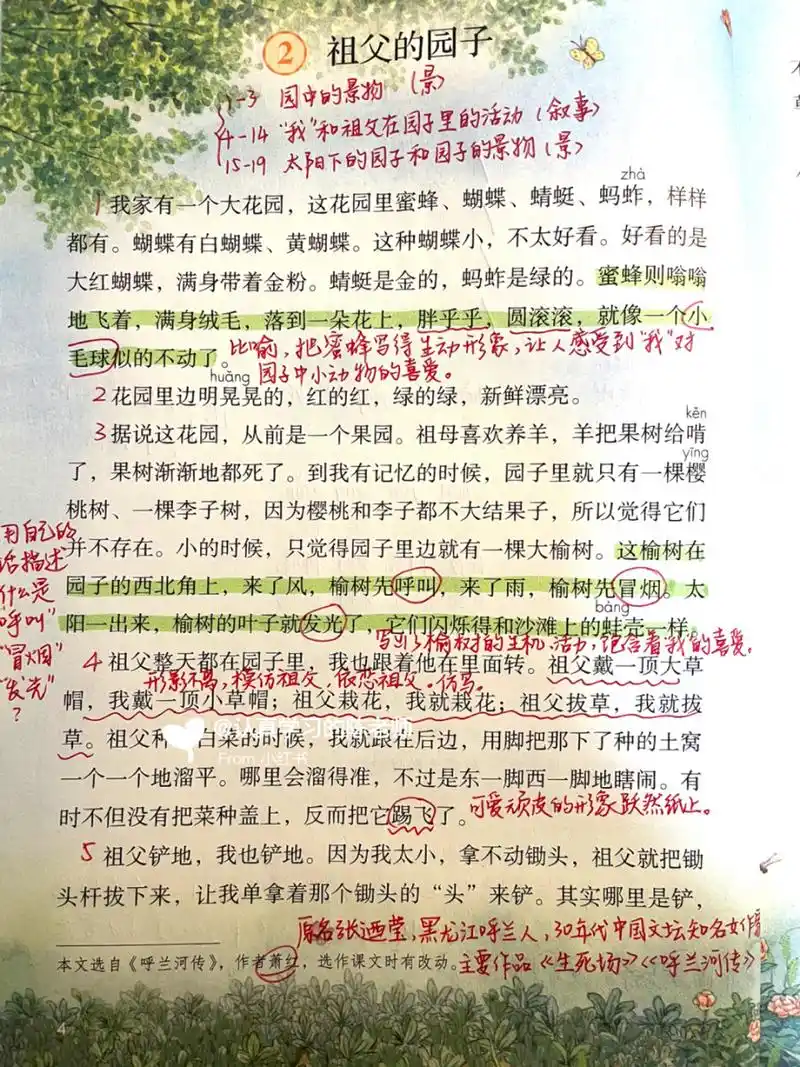 2 祖父的园子
1-3 园中的景物 (景)
4-14 “我”和祖父在园子里的活动 (叙事)
15-19 太阳下的园子和园子的景物 (景)
zhà
1 我家有一个大花园，这花园里蜜蜂、蝴蝶、蜻蜓、蚂蚱，样样
都有。蝴蝶有白蝴蝶、黄蝴蝶。这种蝴蝶小，不太好看。好看的是
大红蝴蝶，满身带着金粉。蜻蜓是金的，蚂蚱是绿的。蜜蜂则嗡嗡
地飞着，满身绒毛，落到一朵花上，胖乎乎，圆滚滚，就像一个小
毛球似的不动了。
比喻，把蜜蜂写得生动形象，让人感受到“我”对
园子中小动物的喜爱。
huǎng
2 花园里边明晃晃的，红的红，绿的绿，新鲜漂亮。
kěn
3 据说这花园，从前是一个果园。祖母喜欢养羊，羊把果树给啃
yīng
了，果树渐渐地都死了。到我有记忆的时候，园子里就只有一棵樱
桃树、一棵李子树，因为樱桃和李子都不大结果子，所以觉得它们
并不存在。小的时候，只觉得园子里边就有一棵大榆树。这榆树在
园子的西北角上，来了风，榆树先呼叫，来了雨，榆树先冒烟。太
bàng
阳一出来，榆树的叶子就发光了，它们闪烁得和沙滩上的蚌壳一样。
用自己的
话描述
什么是
“呼叫”
“冒烟”
“发光”
？
写出了榆树的生机、活力，饱含着我的喜爱。
4 祖父整天都在园子里，我也跟着他在里面转。祖父戴一顶大草
形影不离，模仿祖父，依恋祖父。仿写。
帽，我戴一顶小草帽；祖父栽花，我就栽花；祖父拔草，我就拔
草。祖父种 白菜的时候，我就跟在后边，用脚把那下了种的土窝
一个一个地溜平。哪里会溜得准，不过是东一脚西一脚地瞎闹。有
时不但没有把菜种盖上，反而把它踢飞了。
可爱顽皮的形象跃然纸上。
5 祖父铲地，我也铲地。因为我太小，拿不动锄头，祖父就把锄
头杆拔下来，让我单拿着那个锄头的“头”来铲。其实哪里是铲，
原名张迺莹，黑龙江呼兰人，30年代中国文坛知名女作
本文选自《呼兰河传》，作者萧红，选作课文时有改动。
主要作品《生死场》《呼兰河传》
4
@认真学习的陈老师
From 小红书